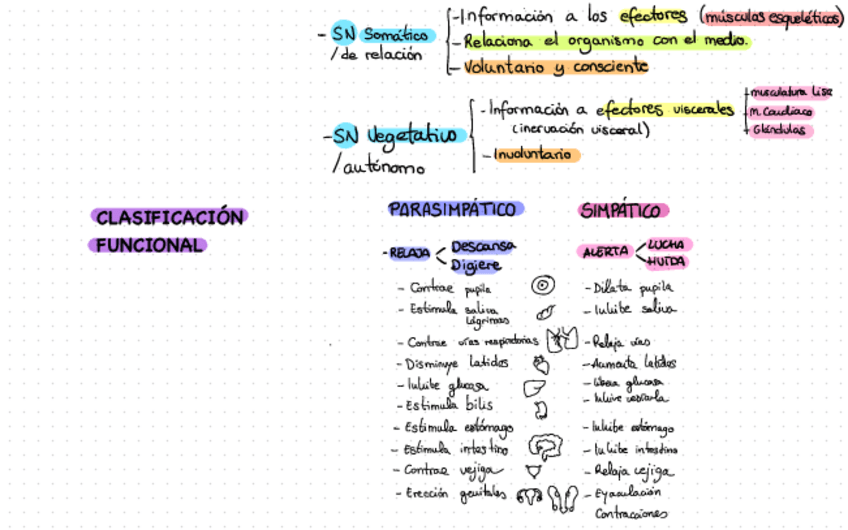 - SN Somático
/ de relación
- Información a los efectores (músculos esqueléticos)
- Relaciona el organismo con el medio.
- Voluntario y consciente
- SN Vegetativo
/ autónomo
- Información a efectores viscerales
(inervación visceral)
- musculatura Lisa
- M. Cardiaco
+ Glándulas
- Involuntario
CLASIFICACIÓN
FUNCIONAL
PARASIMPÁTICO
- RELAJA < Descansa
Digiere
- Contrae pupila
- Estimula saliva
lágrimas
- Contrae vías respiratorias
- Disminuye latidos
- Inhibe glucosa
- Estimula bilis
- Estimula estómago
- Estimula intestino
- Contrae vejiga
- Erección genitales
SIMPÁTICO
ALERTA < LUCHA
HUIDA
- Dilata pupila
- Inhibe saliva
- Relaja vías
- Aumenta latidos
- Libera glucosa
- Inhibe vesícula
- Inhibe estómago
- Inhibe intestino
- Relaja vejiga
- Eyaculación
Contracciones